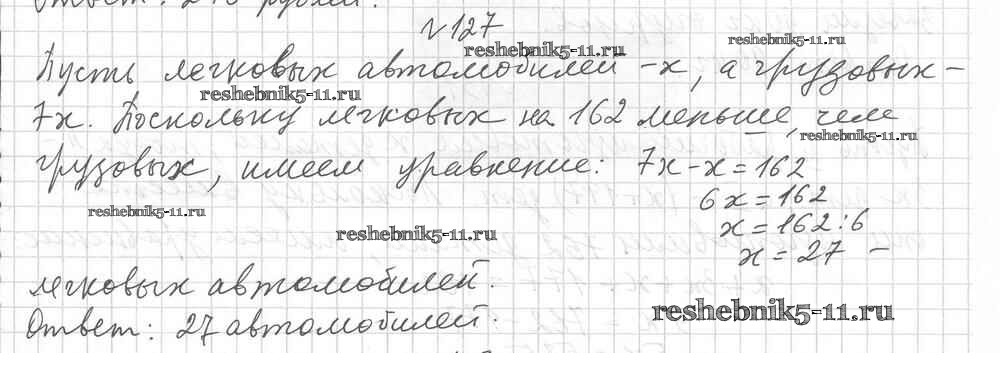 Ответ: 216 рублей.
№127
reshebnik5-11.ru
reshebnik5-11.ru
Пусть легковых автомобилей - x, а грузовых -
reshebnik5-11.ru
7x. Поскольку легковых на 162 меньше, чем
reshebnik5-11.ru
грузовых, имеем уравнение: 7x-x=162
6x=162
reshebnik5-11.ru
x=162:6
reshebnik5-11.ru
x=27 -
легковых автомобилей.
reshebnik5-11.ru
Ответ: 27 автомобилей.